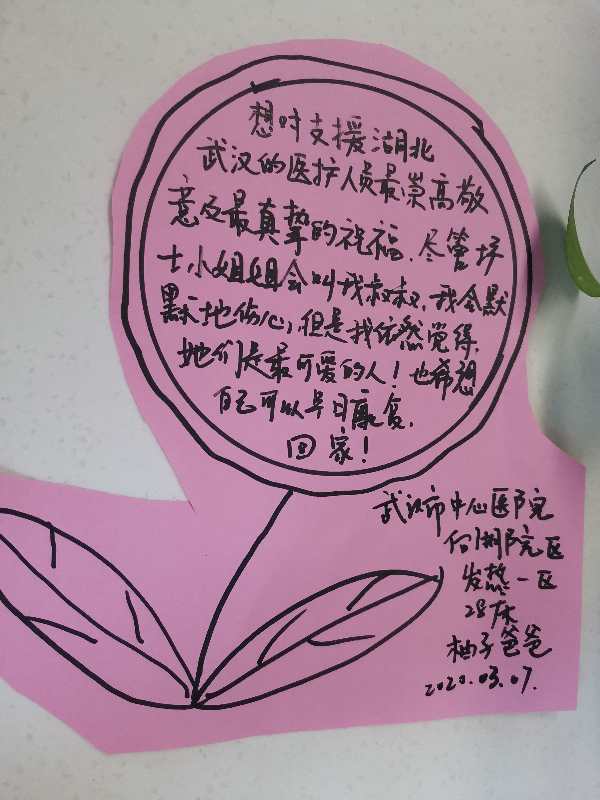 想对支援湖北
武汉的医护人员最崇高敬
意及最真挚的祝福。尽管
士小姐姐会叫我叔叔，我会默
默地伤心，但是我依然觉得，
她们是最可爱的人！也希想
自己可以早日康复，
回家！
武汉市中心医院
后湖院区
发热一区
28床
柚子爸爸
2020.03.07.